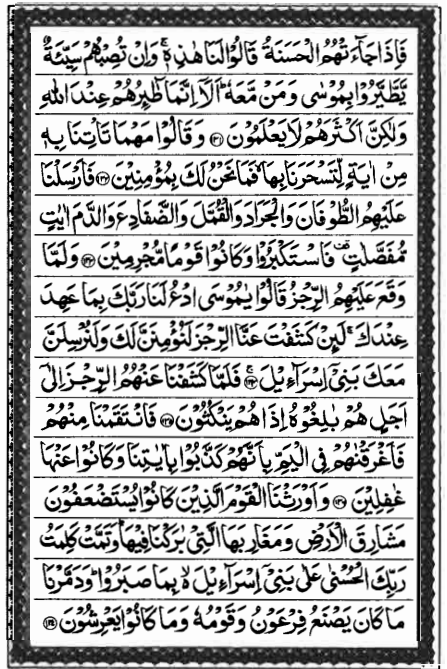 فَاِذَا جَآءَتْهُمُ الْحَسَنَةُ قَالُوْا لَنَا هٰذِهٖ ۚ وَاِنْ تُصِبْهُمْ سَيِّئَةٌ
يَّطَّيَّرُوْا بِمُوْسٰى وَمَنْ مَّعَهٗ ؕ اَلَاۤ اِنَّمَا طٰٓئِرُهُمْ عِنْدَ اللّٰهِ
وَلٰكِنَّ اَكْثَرَهُمْ لَا يَعْلَمُوْنَ ﴿۱۳۱﴾ وَقَالُوْا مَهْمَا تَاْتِنَا بِهٖ
مِنْ اٰيَةٍ لِّتَسْحَرَنَا بِهَا ۙ فَمَا نَحْنُ لَكَ بِمُؤْمِنِيْنَ ﴿۱۳۲﴾ فَاَرْسَلْنَا
عَلَيْهِمُ الطُّوْفَانَ وَالْجَرَادَ وَالْقُمَّلَ وَالضَّفَادِعَ وَالدَّمَ اٰيٰتٍ
مُّفَصَّلٰتٍ فَاسْتَكْبَرُوْا وَكَانُوْا قَوْمًا مُّجْرِمِيْنَ ﴿۱۳۳﴾ وَلَمَّا
وَقَعَ عَلَيْهِمُ الرِّجْزُ قَالُوْا يٰمُوْسَى ادْعُ لَنَا رَبَّكَ بِمَا عَهِدَ
عِنْدَكَ ۚ لَئِنْ كَشَفْتَ عَنَّا الرِّجْزَ لَنُؤْمِنَنَّ لَكَ وَلَنُرْسِلَنَّ
مَعَكَ بَنِيْۤ اِسْرَآءِيْلَ ﴿۱۳۴﴾ ۚ فَلَمَّا كَشَفْنَا عَنْهُمُ الرِّجْزَ اِلٰۤى
اَجَلٍ هُمْ بٰلِغُوْهُ اِذَا هُمْ يَنْكُثُوْنَ ﴿۱۳۵﴾ فَانْتَقَمْنَا مِنْهُمْ
فَاَغْرَقْنٰهُمْ فِى الْيَمِّ بِاَنَّهُمْ كَذَّبُوْا بِاٰيٰتِنَا وَكَانُوْا عَنْهَا
غٰفِلِيْنَ ﴿۱۳۶﴾ وَاَوْرَثْنَا الْقَوْمَ الَّذِيْنَ كَانُوْا يُسْتَضْعَفُوْنَ
مَشَارِقَ الْاَرْضِ وَمَغَارِبَهَا الَّتِيْ بٰرَكْنَا فِيْهَا ؕ وَتَمَّتْ كَلِمَتُ
رَبِّكَ الْحُسْنٰى عَلٰى بَنِيْۤ اِسْرَآءِيْلَ ۙ بِمَا صَبَرُوْا ؕ وَدَمَّرْنَا
مَا كَانَ يَصْنَعُ فِرْعَوْنُ وَقَوْمُهٗ وَمَا كَانُوْا يَعْرِشُوْنَ ﴿۱۳۷﴾